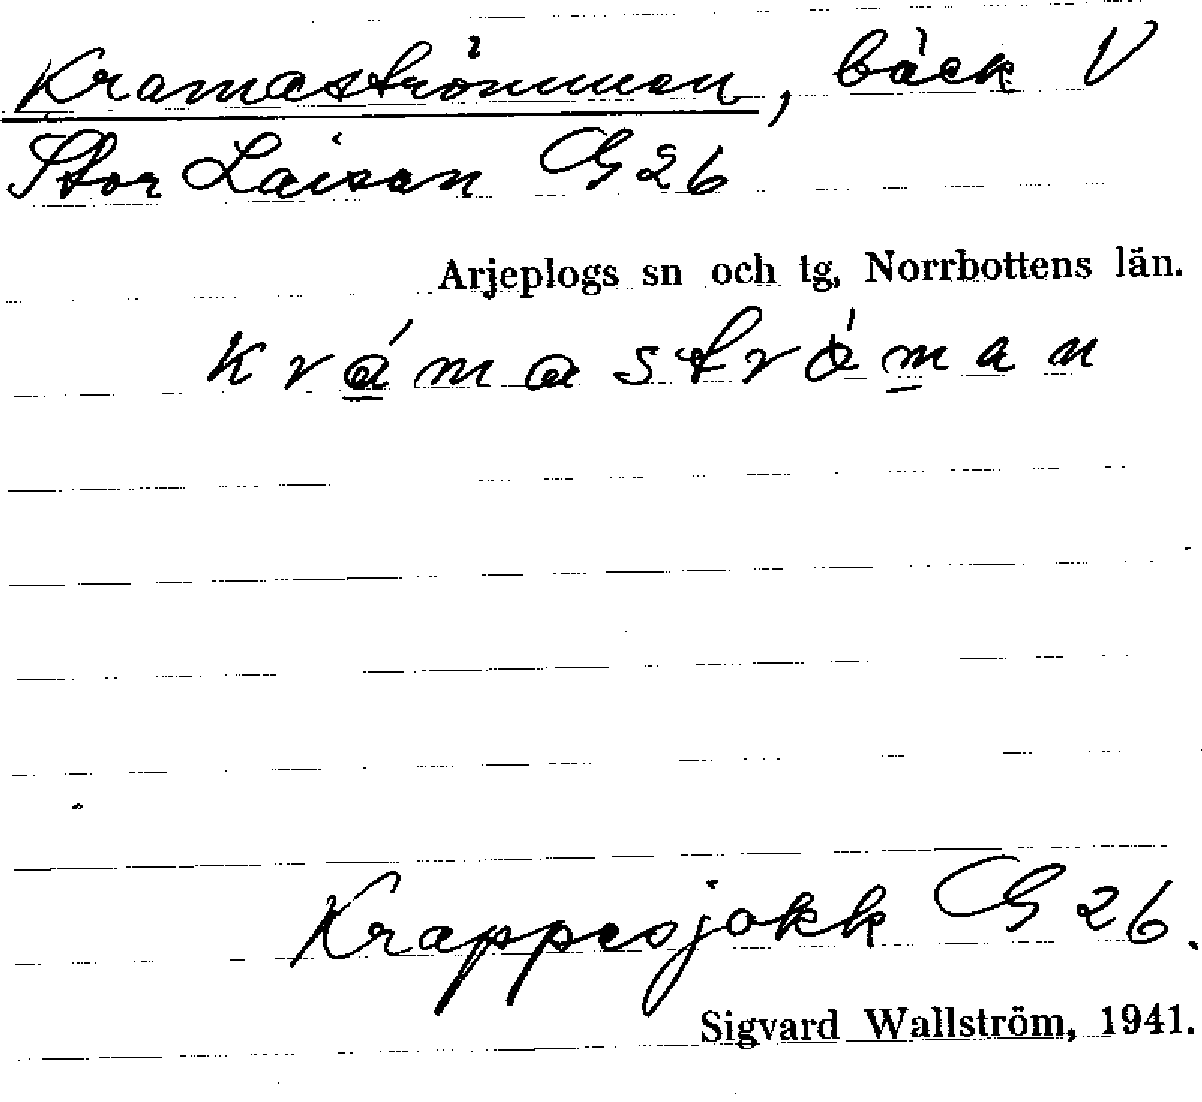 Kramaströmmen, bäck V
Stor Laisan G 26
Arjeplogs sn och tg, Norrbottens län.
krámaströ́man
Krappesjokk G 26.
Sigvard Wallström, 1941.